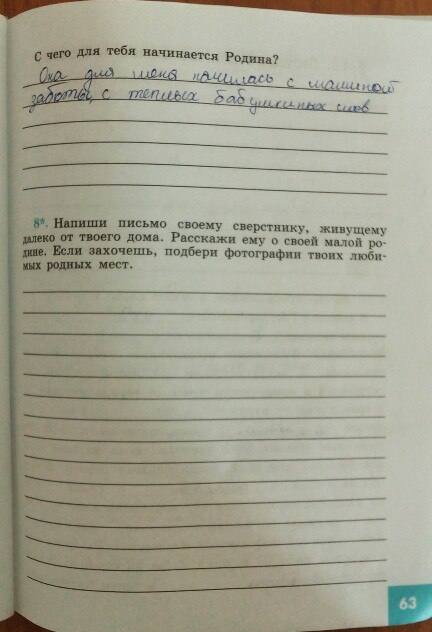 С чего для тебя начинается Родина?
Она для меня началась с маминой
заботы, с теплых бабушкиных слов
8*. Напиши письмо своему сверстнику, живущему
далеко от твоего дома. Расскажи ему о своей малой ро-
дине. Если захочешь, подбери фотографии твоих люби-
мых родных мест.
63